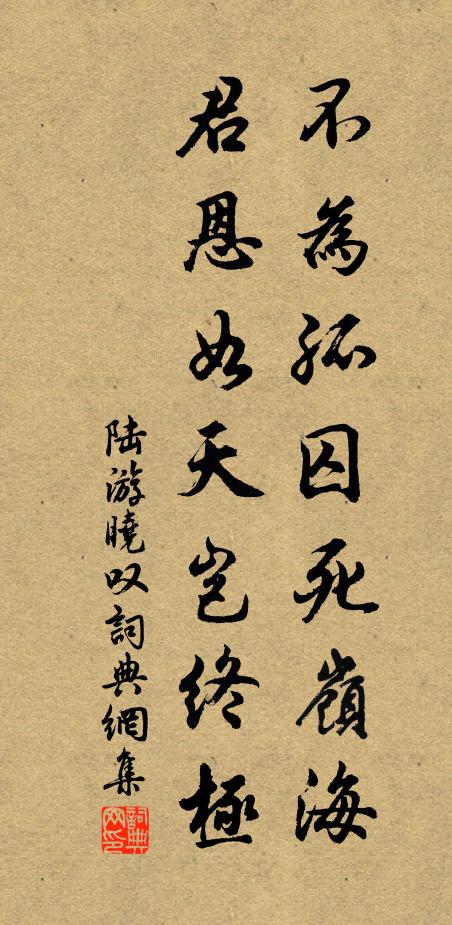 不為孤囚死嶺海
君恩如天豈終極
陸游曉叹詞典網集
詞典
网印